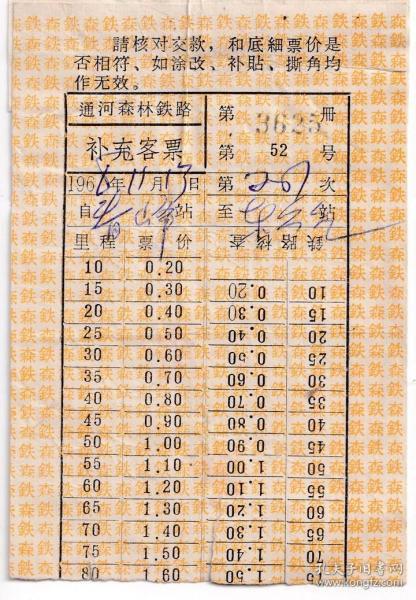 請核对交款，和底細票价是
否相符、如涂改、补貼、撕角均
作无效。
通河森林鉄路
第 3625 冊
补充客票
第 52 号
196 年11月13日
第 次
自 站
至 站
里程 票价
鉄路核查
10 0.20
15 0.30
20 0.40
25 0.50
30 0.60
35 0.70
40 0.80
45 0.90
50 1.00
55 1.10
60 1.20
65 1.30
70 1.40
75 1.50
80 1.60
0.20 10
0.30 15
0.40 20
0.50 25
0.60 30
0.70 35
0.80 40
0.90 45
1.00 50
1.10 55
1.20 60
1.30 65
1.40 70
1.50 75
孔夫子旧书网